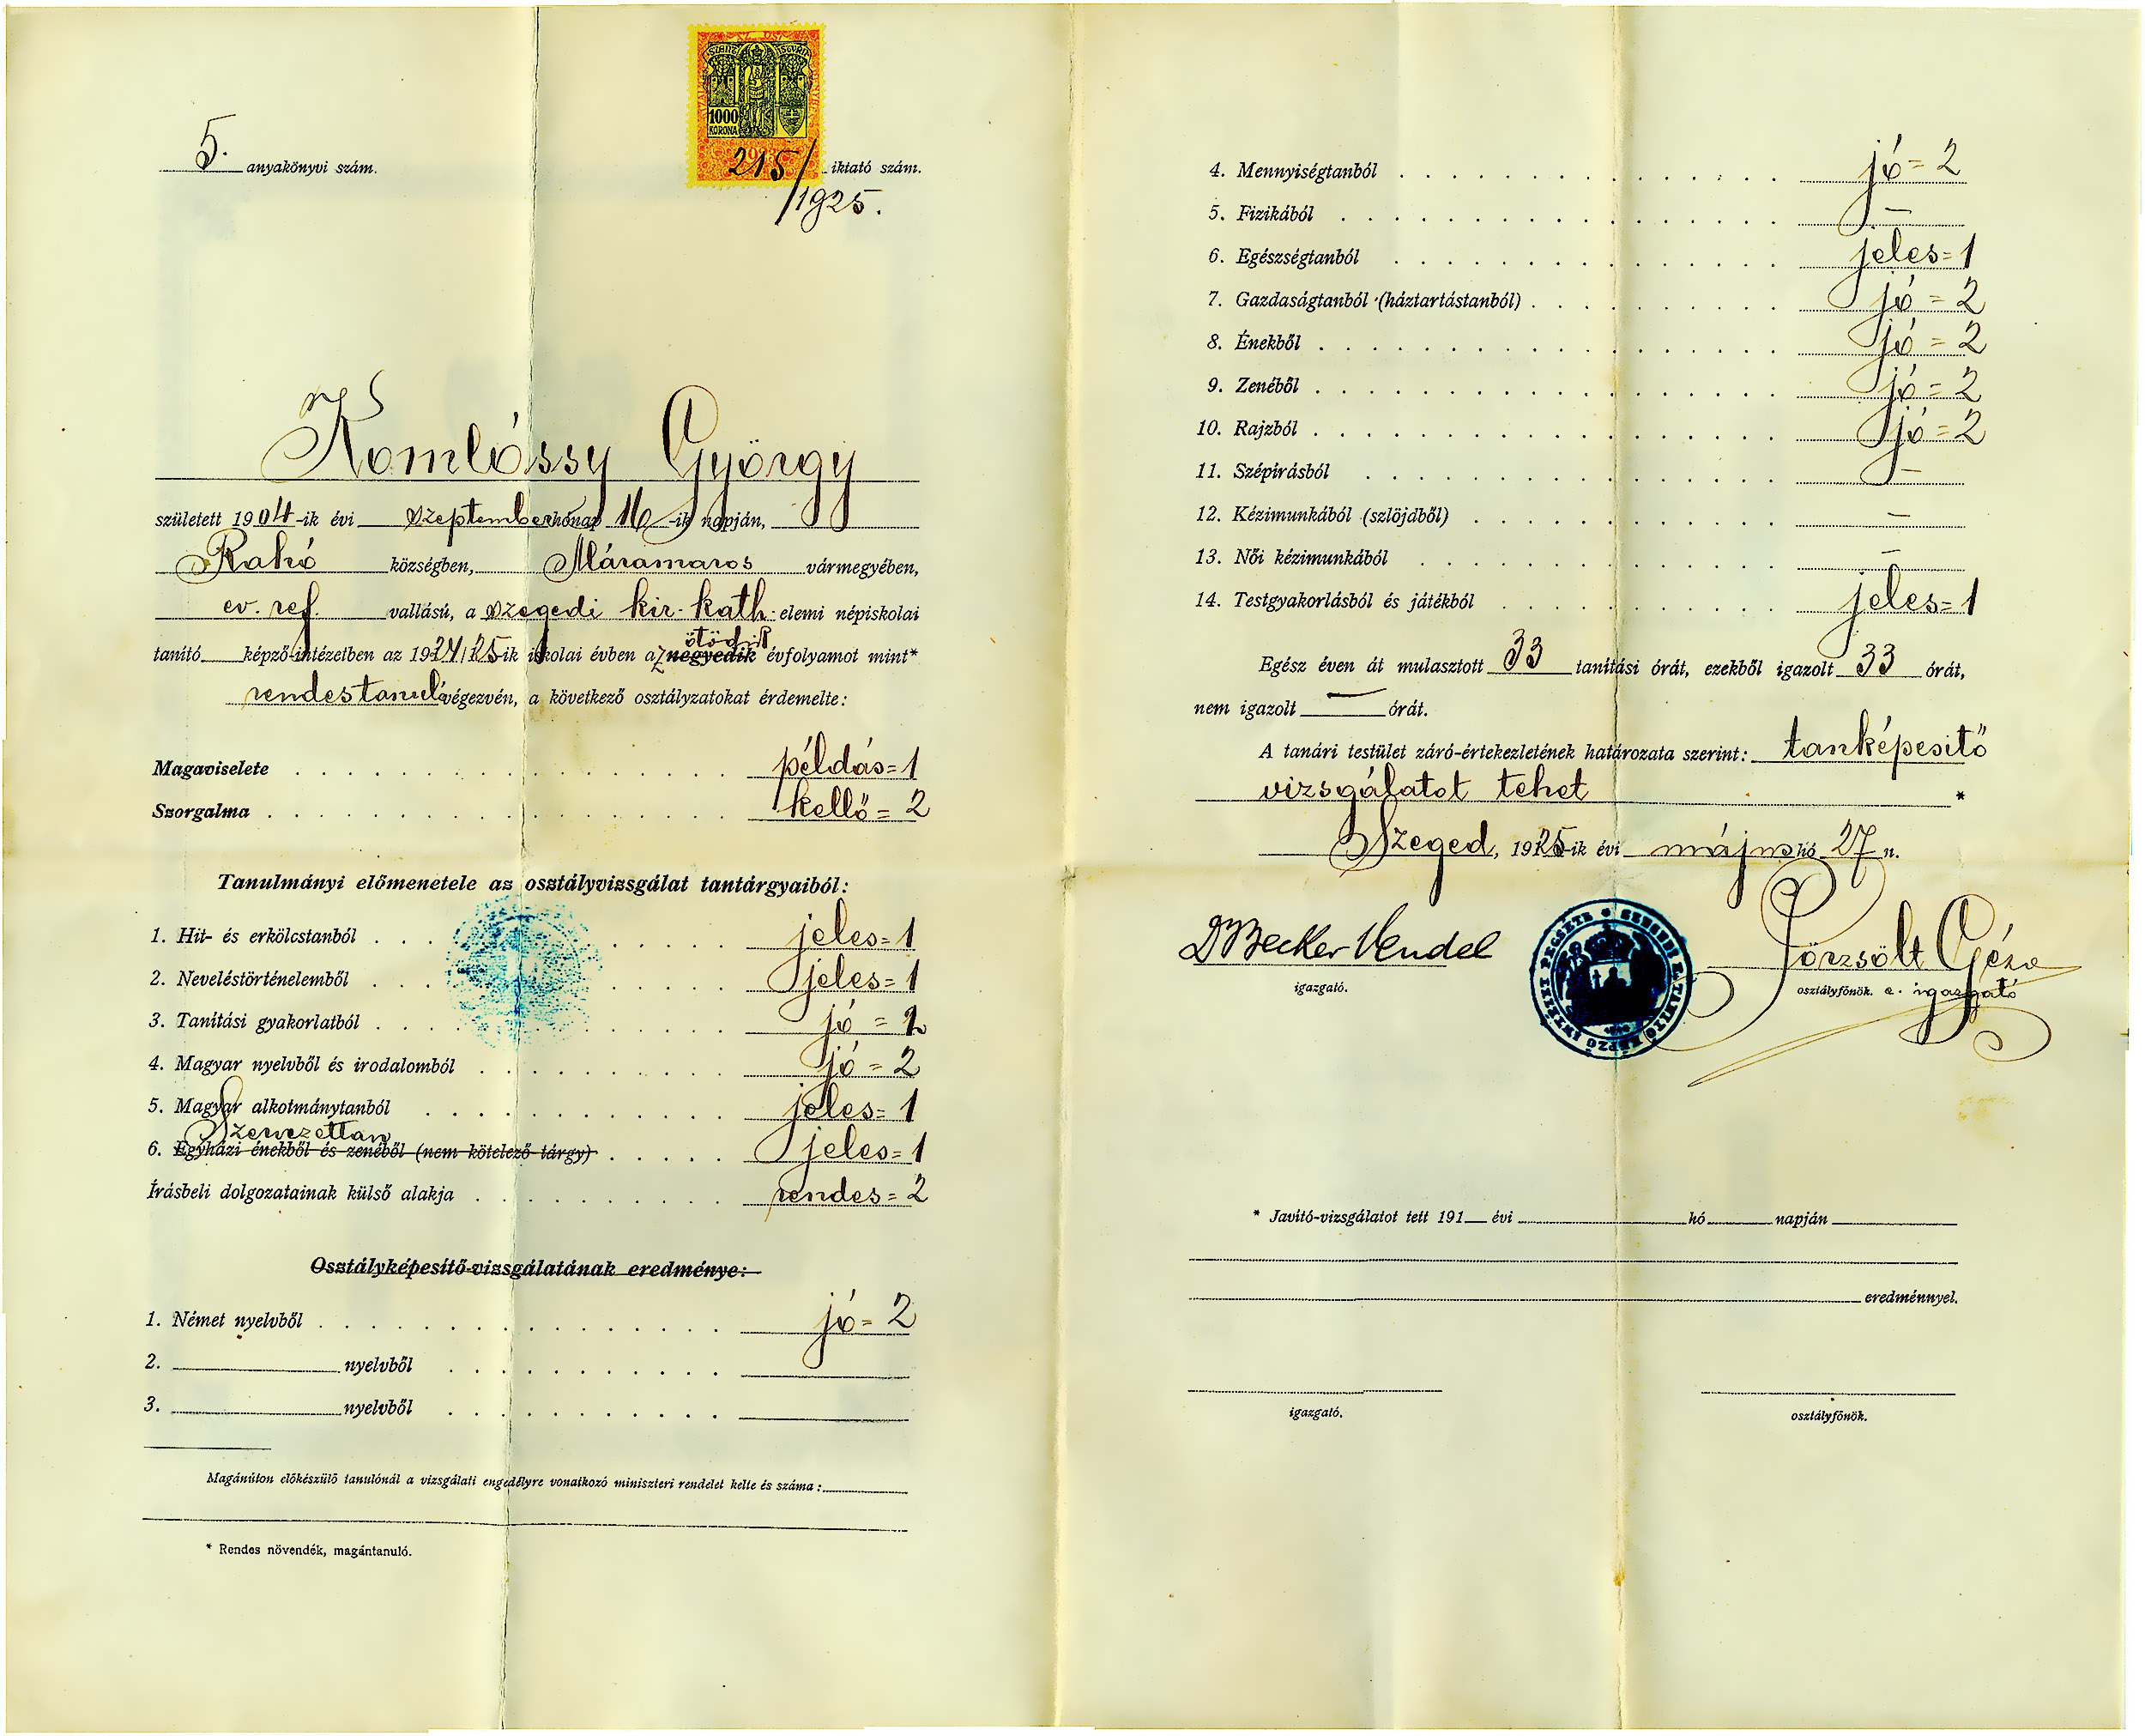 5. anyakönyvi szám.
SZENT ISTVÁN
1000
KORONA
215/ iktató szám.
/1925.
Komlóssy György
született 1904-ik évi szeptember hónap 16-ik napján,
Rahó községben, Máramaros vármegyében,
ev. ref. vallású, a szegedi kir. kath. elemi népiskolai
ötödik
tanító képző-intézetben az 1924/25-ik iskolai évben az negyedik évfolyamot mint*
rendes tanuló végezvén, a következő osztályzatokat érdemelte:
Magaviselete példás=1
Szorgalma kellő=2
Tanulmányi előmenetele az osztályvizsgálat tantárgyaiból:
1. Hit- és erkölcstanból jeles=1
2. Neveléstörténelemből jeles=1
3. Tanítási gyakorlatból jó =
4. Magyar nyelvből és irodalomból jó = 2
5. Magyar alkotmánytanból jeles=1
Szervezettan
6. Egyházi énekből és zenéből (nem kötelező tárgy) jeles=1
Írásbeli dolgozatainak külső alakja rendes=2
Osztályképesítő-vizsgálatának eredménye:
1. Német nyelvből jó=2
2. nyelvből
3. nyelvből
Magánúton előkészülő tanulónál a vizsgálati engedélyre vonatkozó miniszteri rendelet kelte és száma:
* Rendes növendék, magántanuló.
4. Mennyiségtanból jó=2
5. Fizikából —
6. Egészségtanból jeles=1
7. Gazdaságtanból (háztartástanból) jó = 2
8. Énekből jó = 2
9. Zenéből jó = 2
10. Rajzból jó = 2
11. Szépírásból —
12. Kézimunkából (szlöjdből) —
13. Női kézimunkából —
14. Testgyakorlásból és játékból jeles=1
Egész éven át mulasztott 33 tanítási órát, ezekből igazolt 33 órát,
nem igazolt — órát.
A tanári testület záró-értekezletének határozata szerint: tanképesítő
vizsgálatot tehet *
Szeged, 1925-ik évi május hó 27 n.
Dr Becker Vendel
igazgató.
Pörzsölt Géza
osztályfőnök. e. igazgató
* Javító-vizsgálatot tett 191 évi hó napján
eredménnyel.
igazgató.
osztályfőnök.